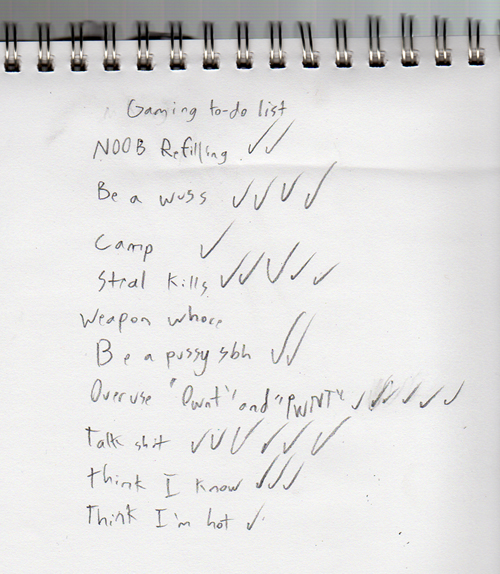 Gaming to-do list
NOOB Refilling ✓✓
Be a wuss ✓✓✓✓
Camp ✓
Steal kills ✓✓✓✓✓
Weapon whore
Be a pussy sbh ✓✓
Over use "Ownt" and "PWNT" ✓✓✓✓✓✓
Talk shit ✓✓✓✓✓✓
think I know ✓✓✓
Think I'm hot ✓